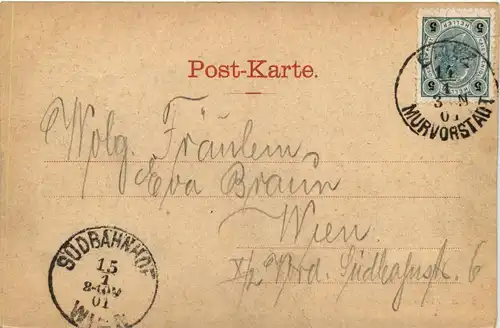 5 5
GRAZ
14
1
3 N
01
MURVORSTADT
Post-Karte.
Wolg. Fräulein
Eva Braun
Wien.
X/2 Südbahnstr. 6
SÜDBAHNHOF
15
1
01
WIEN